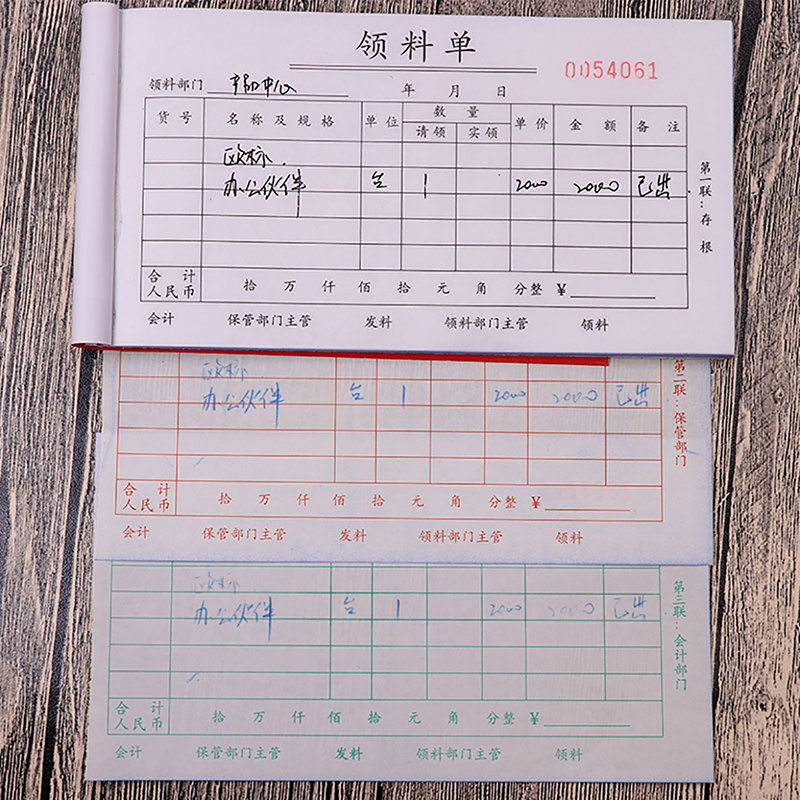 领料单
0054061
领料部门 中心 年 月 日
货号 名称及规格 单位 数量 单价 金额 备注
请领 实领
欧标
办公伙伴 台 1 2000 2000 已出
合计人民币 拾 万 仟 佰 拾 元 角 分整 ¥
会计 保管部门主管 发料 领料部门主管 领料
第一联:存根
欧标
办公伙伴 台 1 2000 2000 已出
合计人民币 拾 万 仟 佰 拾 元 角 分整 ¥
会计 保管部门主管 发料 领料部门主管 领料
第二联:保管部门
欧标
办公伙伴 台 1 2000 2000 已出
合计人民币 拾 万 仟 佰 拾 元 角 分整 ¥
会计 保管部门主管 发料 领料部门主管 领料
第三联:会计部门